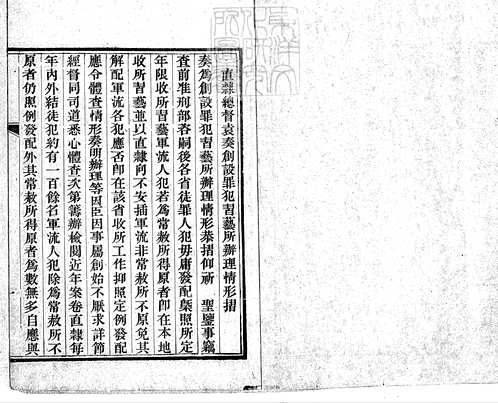 直隸總督袁奏創設罪犯習藝所辦理情形摺
奏爲創設罪犯習藝所辦理情形恭摺仰祈　聖鑒事竊
查前准刑部咨嗣後各省徒罪人犯毋庸發配槩照所定
年限收所習藝軍流人犯若爲常赦所得原者卽在本地
收所習藝並以直隸向不安插軍流非常赦所不原免其
解配軍流各犯應否卽在該省收所工作抑照定例發配
應令體查情形奏明辦理等因臣因事屬創始不厭求詳節
經督同司道悉心體查次第籌辦檢閱近年案卷直隸每
年內外結徒犯約有一百餘名軍流人犯除爲常赦所不
原者仍照例發配外其常赦所得原者爲數無多自應與